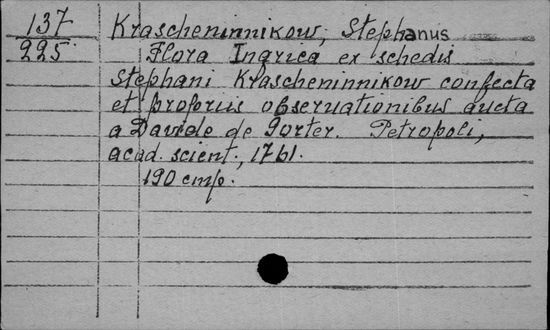 137 Krascheninnikow, Stephanus
225. Flora Ingrica ex schedis
Stephani Krascheninnikow confecta
et proforiis observationibus aucta
a Davide de Gorter. Petropoli,
acad. scient., 1761.
190 стр.